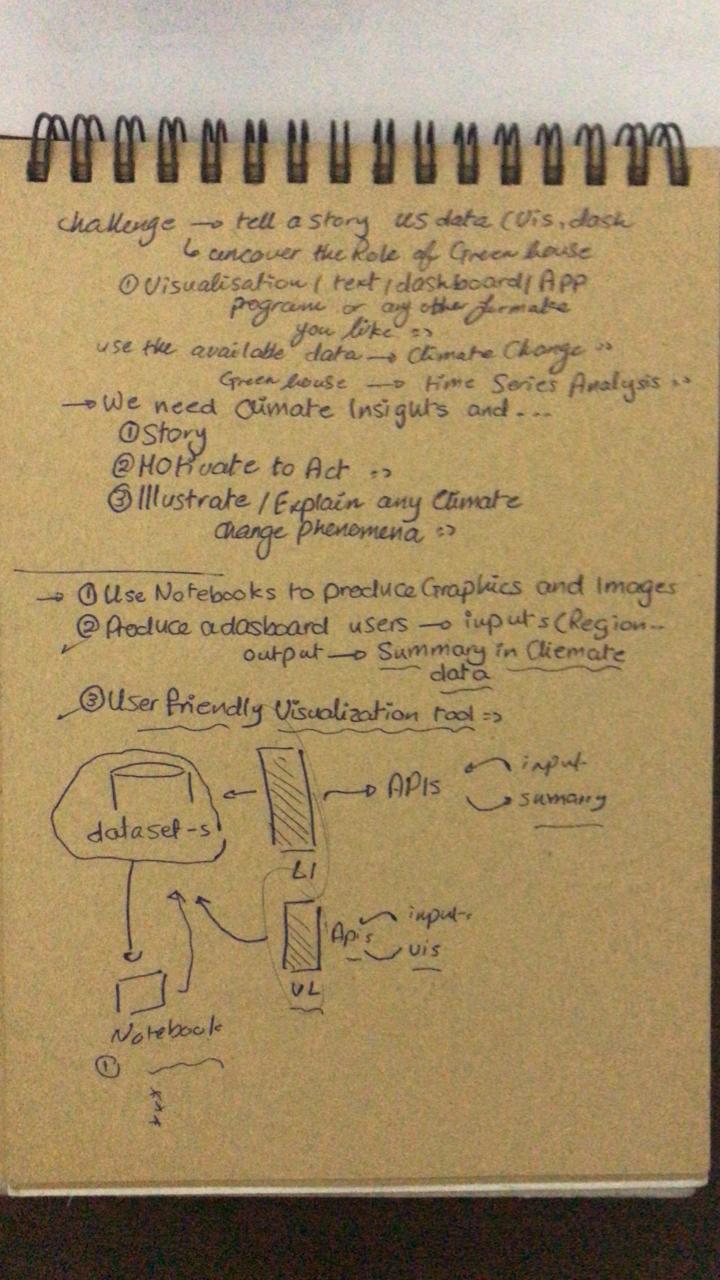 challenge → tell a story us data (Vis, dash
↳ uncover the Role of Green house
① Visualisation / text / dashboard / APP
program or any other formake
you like =>
use the available data → Climate Change =>
Green house → time Series Analysis =>
→ We need Climate Insights and ...
① Story
② Motivate to Act =>
③ Illustrate / Explain any Climate
change phenomena =>
→ ① Use Notebooks to produce Graphics and Images
② Produce a dasboard users → inputs (Region..
output → Summary in Cliemate
data
③ User friendly Visualization tool =>
dataset-s
APIs
input
sumary
LI
Apis
input
vis
VL
Notebook
①